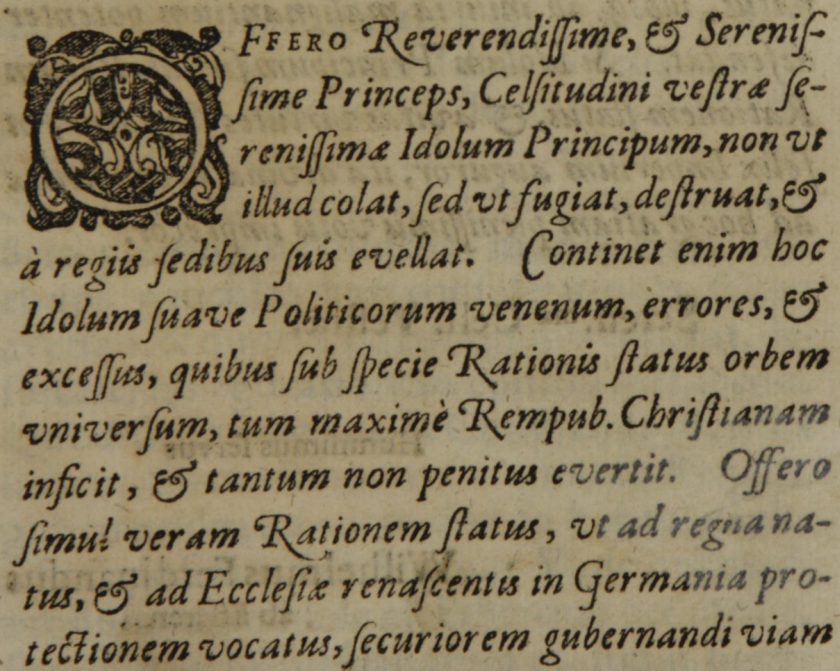 OFFERO Reverendiſſime, & Sereniſ-
ſime Princeps, Celſitudini veſtræ ſe-
reniſſimæ Idolum Principum, non vt
illud colat, ſed vt fugiat, deſtruat, &
à regiis ſedibus ſuis evellat. Continet enim hoc
Idolum ſuave Politicorum venenum, errores, &
exceſſus, quibus ſub ſpecie Rationis ſtatus orbem
vniverſum, tum maximè Rempub. Chriſtianam
inficit, & tantum non penitus evertit. Offero
ſimul veram Rationem ſtatus, vt ad regna na-
tus, & ad Eccleſiæ renaſcentis in Germania pro-
tectionem vocatus, ſecuriorem gubernandi viam